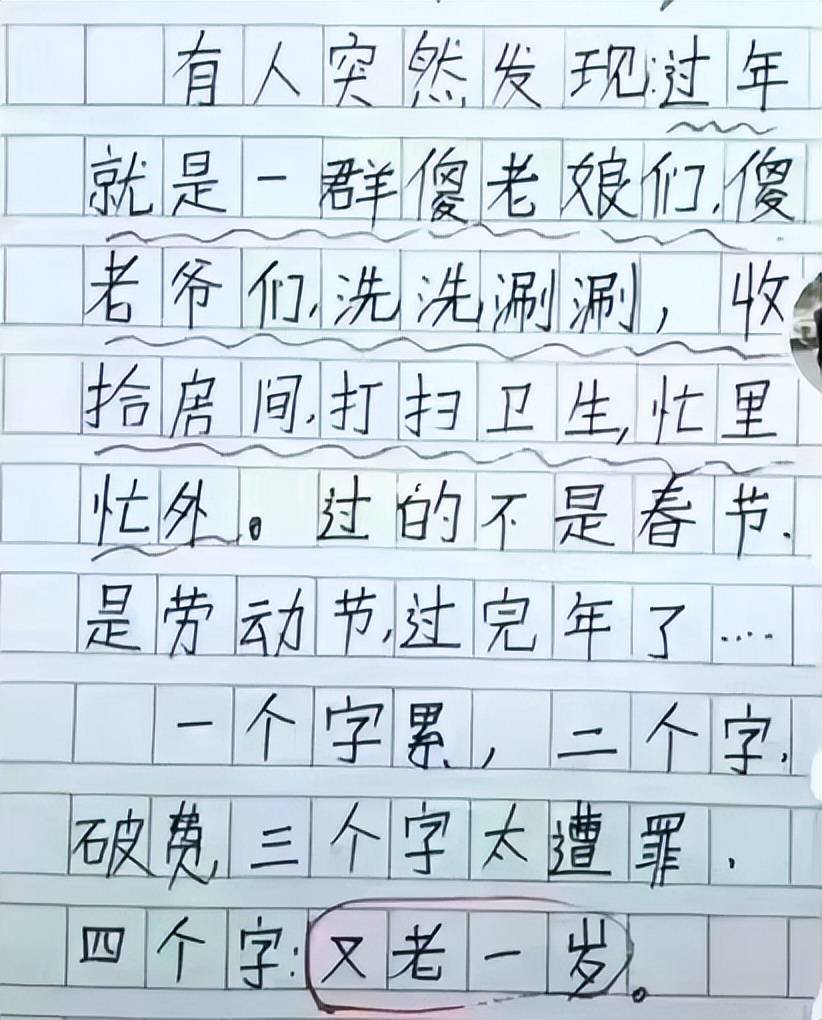 有人突然发现:过年
就是一群傻老娘们,傻
老爷们,洗洗涮涮，收
拾房间,打扫卫生,忙里
忙外。过的不是春节.
是劳动节,过完年了....
一个字累，二个字,
破费三个字太遭罪.
四个字:又老一岁。